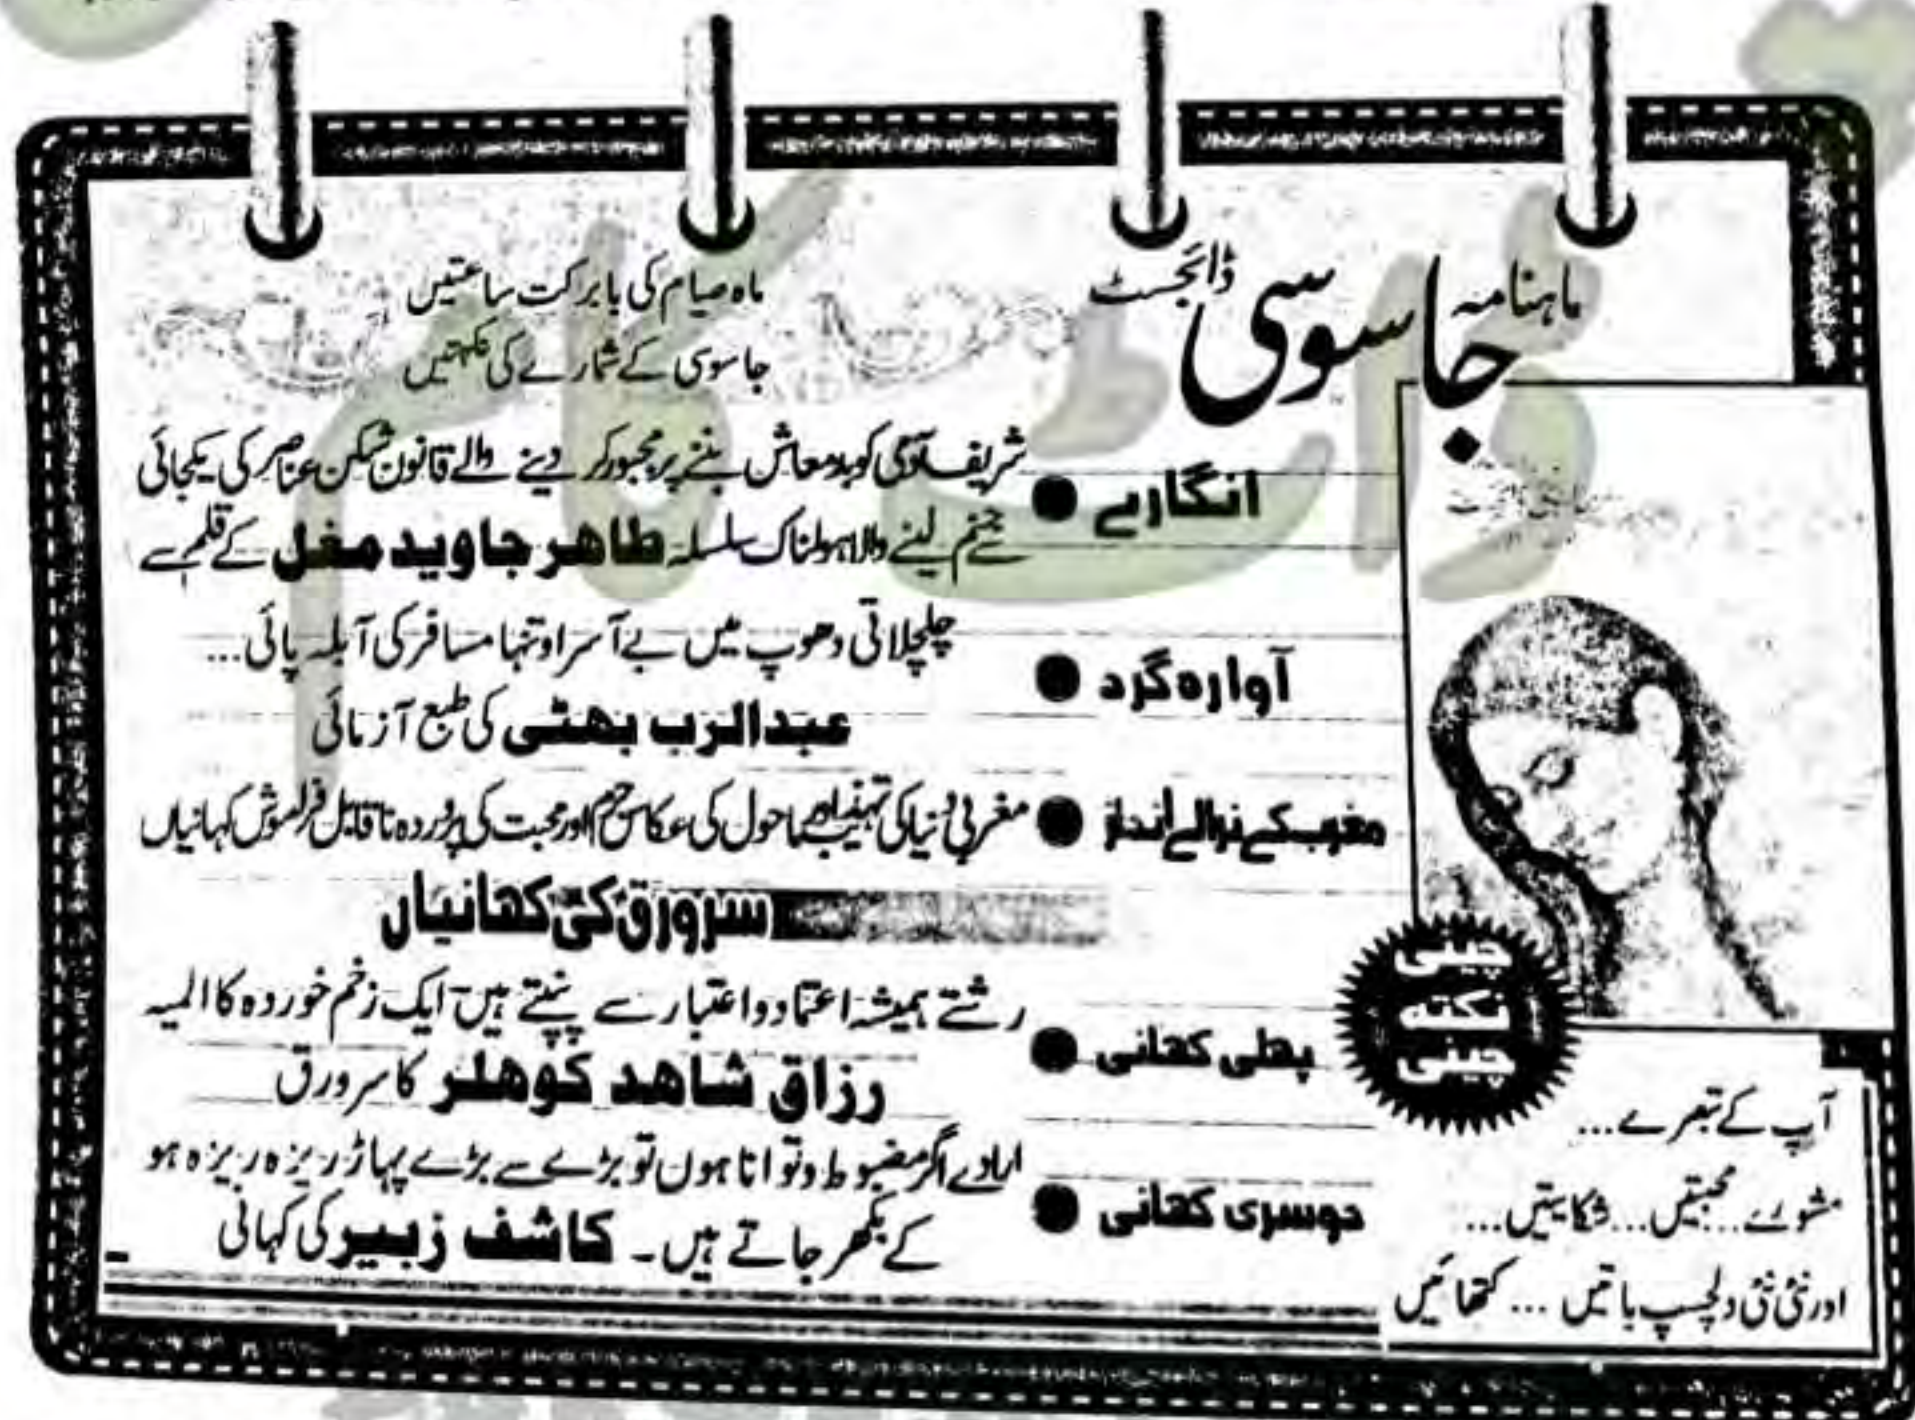 ماہنامہ جاسوسی ڈائجسٹ
ماہ صیام کی بابرکت ساعتیں
جاسوسی کے شمارے کی نکہتیں
انگارے ● شریف آدمی کو بدمعاش بننے پر مجبور کر دینے والے قانون شکن عناصر کی یکجائی
سے جنم لینے والا ہولناک سلسلہ طاہر جاوید مغل کے قلم سے
آوارہ گرد ● چلچلاتی دھوپ میں بے آسرا و تنہا مسافر کی آبلہ پائی...
عبدالرب بھٹی کی طبع آزمائی
مغرب کے نرالے انداز ● مغربی دنیا کی تہذیب اور ماحول کی عکاس جرم اور محبت کی پروردہ ناقابل فراموش کہانیاں
سرورق کی کہانیاں
پہلی کہانی ● رشتے ہمیشہ اعتماد و اعتبار سے پنپتے ہیں ایک زخم خوردہ کا المیہ
رزاق شاہد کوھلر کا سرورق
دوسری کہانی ● ارادے اگر مضبوط و توانا ہوں تو بڑے سے بڑے پہاڑ ریزہ ریزہ ہو
کے بکھر جاتے ہیں۔ کاشف زبیر کی کہانی
چینی
نکتہ
چینی
آپ کے تبصرے...
مشورے... محبتیں... شکایتیں...
اور نئی نئی دلچسپ باتیں... کتھائیں
ڈاٹ کام